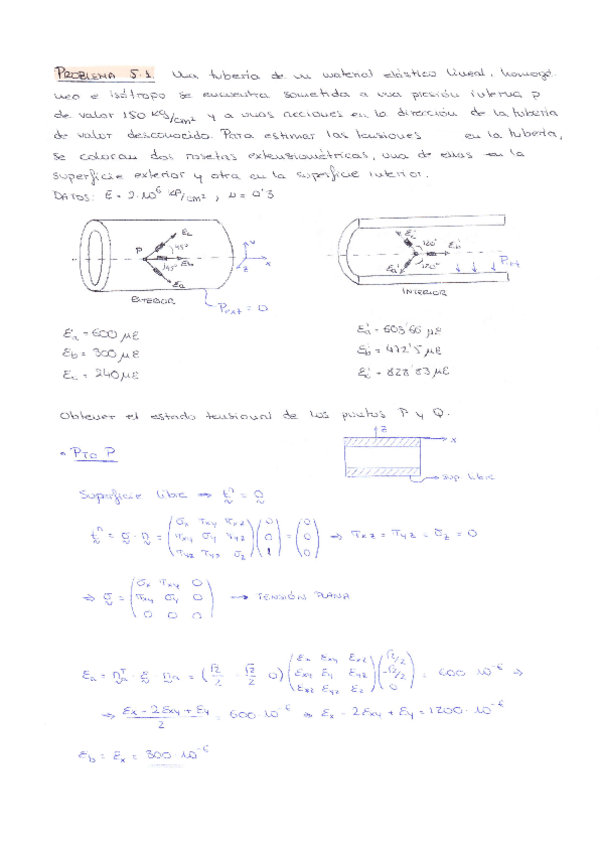 PROBLEMA 5.1. Una tubería de un material elástico lineal, homogé-
neo e isótropo se encuentra sometida a una presión interna p
de valor 150 kg/cm² y a unas acciones en la dirección de la tubería
de valor desconocido. Para estimar las tensiones en la tubería,
se colocan dos rosetas extensiométricas, una de ellas en la
superficie exterior y otra en la superficie interior.
DATOS: E = 2·10⁶ kp/cm², ν = 0'3
P εc 45° εb 45° εa
y x z
EXTERIOR
Pext = 0
εc' 120° εb' εa' 120°
Pint
INTERIOR
εa = 600 με
εb = 300 με
εc = 240 με
εa' = 603'66 με
εb' = 472'5 με
εc' = 828'83 με
Obtener el estado tensional de los puntos P y Q.
• PTO P
z x
sup libre
Superficie libre ⇒ tⁿ = 0
tⁿ = σ · n = (σx τxy τxz / τxy σy τyz / τxz τyz σz) (0 / 0 / 1) = (0 / 0 / 0) ⇒ τxz = τyz = σz = 0
⇒ σ = (σx τxy 0 / τxy σy 0 / 0 0 0) → TENSIÓN PLANA
εa = naᵀ · ε · na = (√2/2 -√2/2 0) (εx εxy εxz / εxy εy εyz / εxz εyz εz) (√2/2 / -√2/2 / 0) = 600·10⁻⁶ ⇒
⇒ (εx - 2εxy + εy)/2 = 600·10⁻⁶ ⇒ εx - 2εxy + εy = 1200·10⁻⁶
εb = εx = 300·10⁻⁶